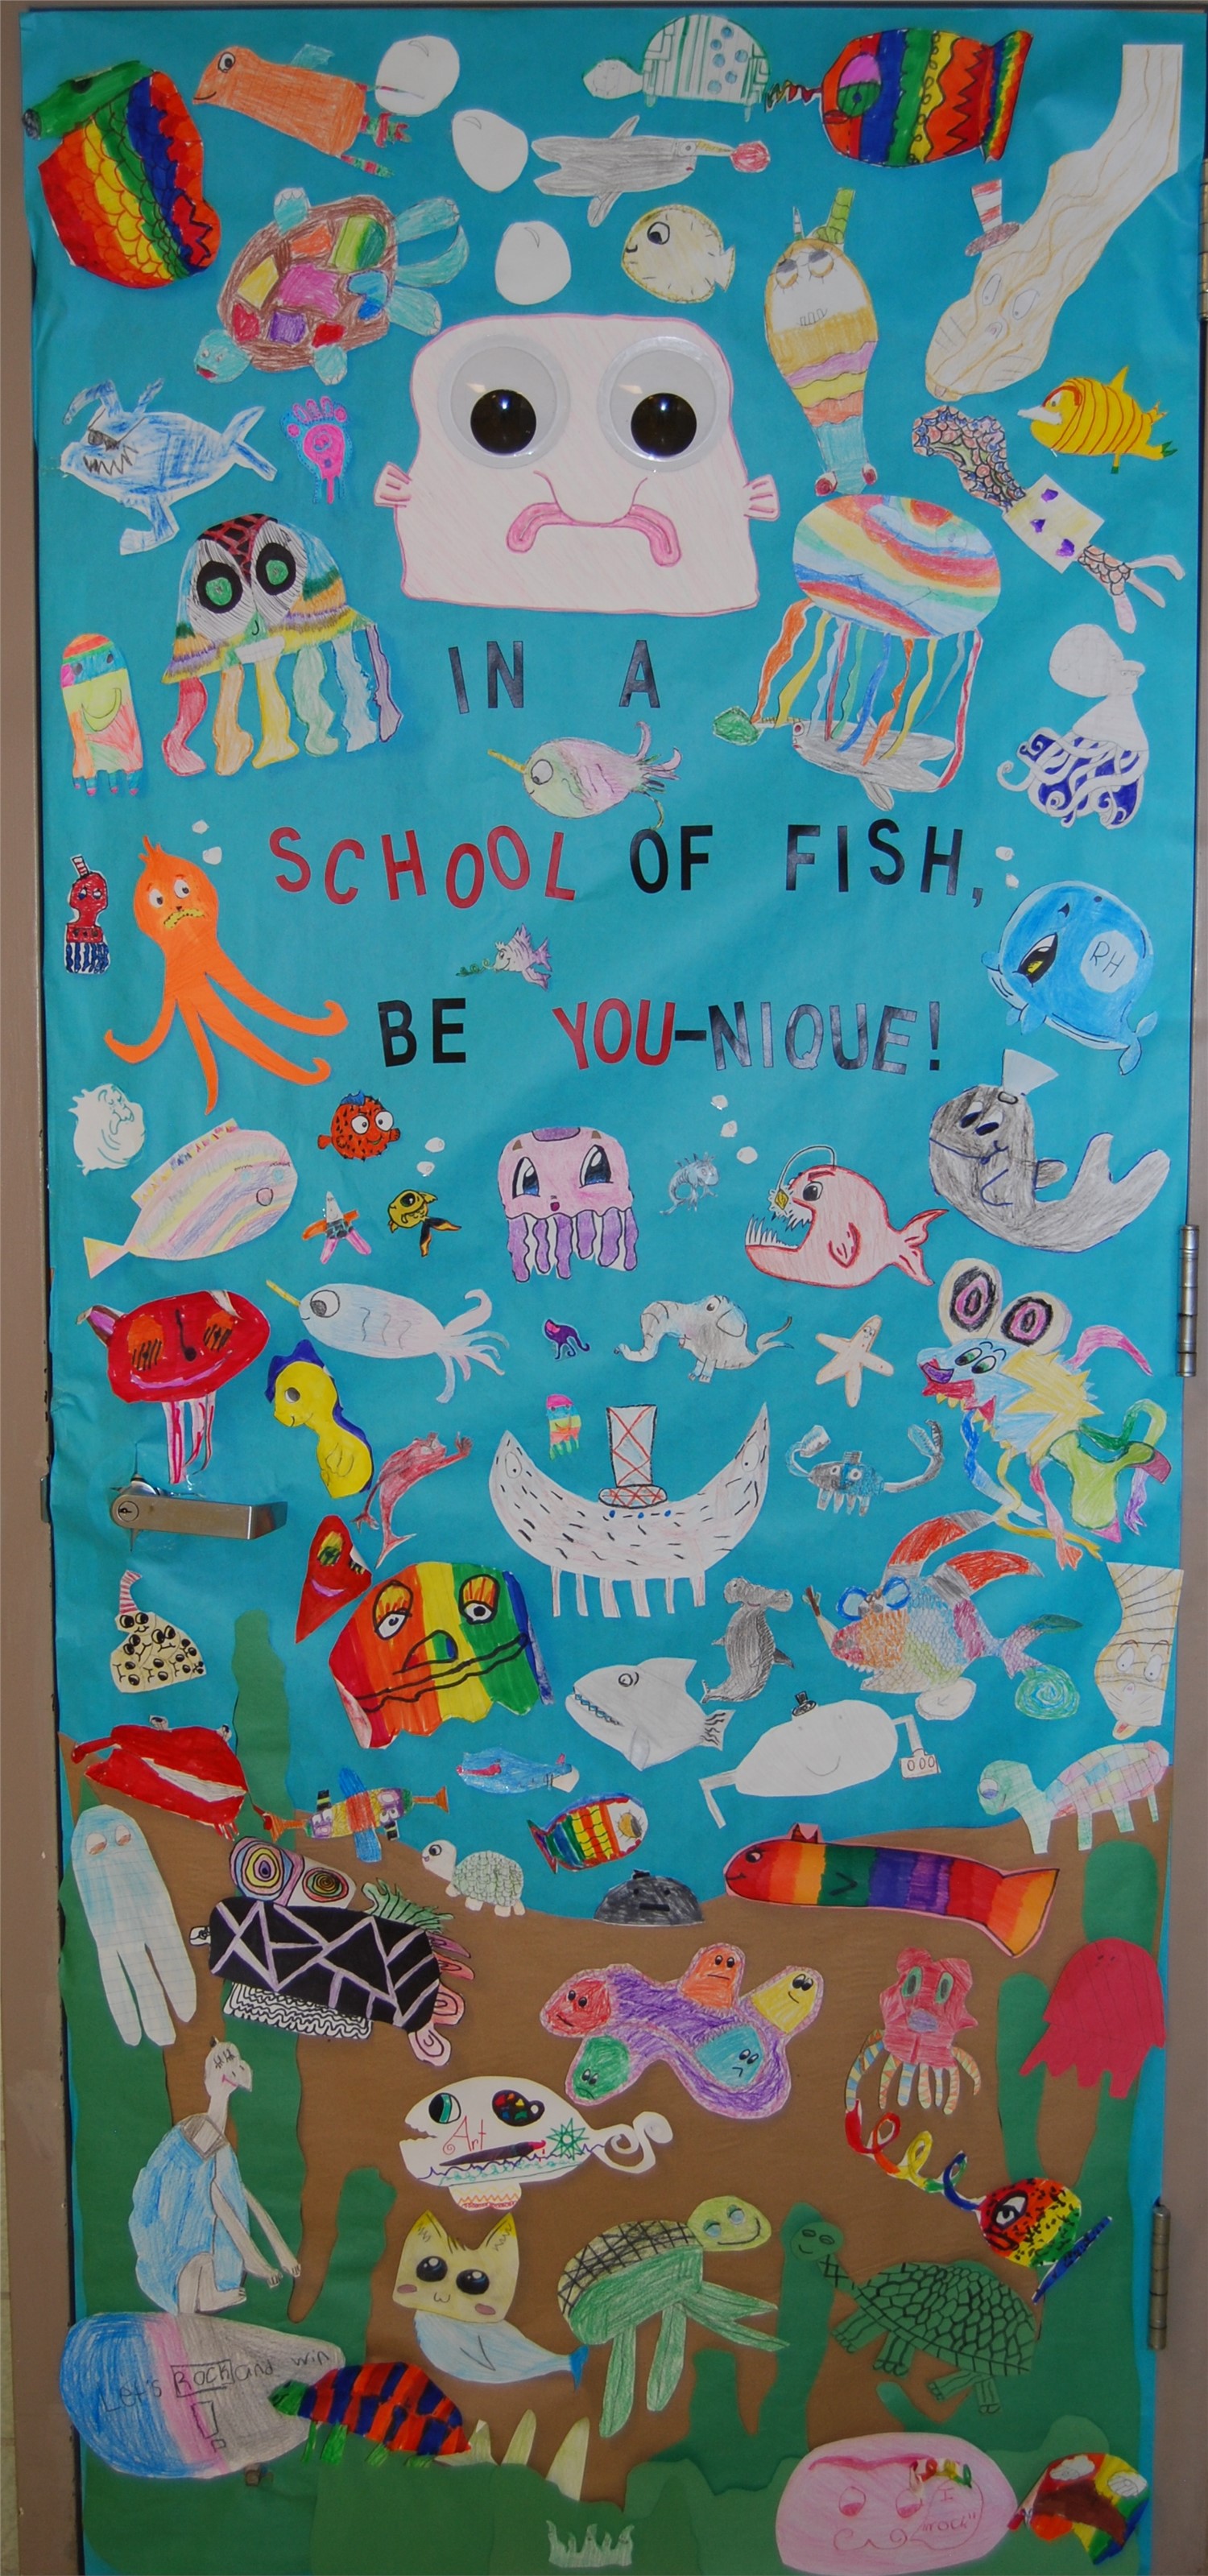 IN A
SCHOOL OF FISH,
BE YOU-NIQUE!
RH
Art
Let's Rock and win
I
"rock"